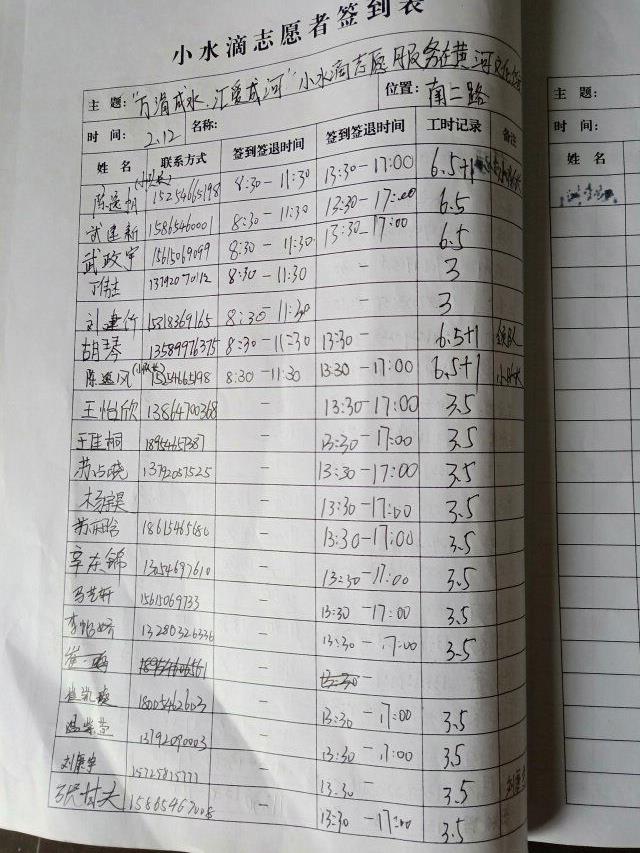 小水滴志愿者签到表
主 题: "万涓成水,汇爱成河"小水滴志愿服务在黄河
时 间: 2.12 名称: 位置: 南二路
姓 名 联系方式 签到签退时间 签到签退时间 工时记录 备注
(小队长) 15254665198 8:30-11:30 13:30-17:00 6.5+1
武建新 15865460001 8:30-11:30 13:30-17:00 6.5
武政宇 15615069099 8:30-11:30 13:30-17:00 6.5
丁伟杰 13792070112 8:30-11:30 - 3
刘建行 15318369165 8:30-11:30 - 3
胡琴 13589976375 8:30-11:30 13:30- 6.5+1
(小队长) 15254665198 8:30-11:30 13:30-17:00 6.5+1
王怡欣 13864700368 - 13:30-17:00 3.5
王佳桐 18954657387 - 13:30-17:00 3.5
苏占晓 13792057525 - 13:30-17:00 3.5
杨宗昊 - 13:30-17:00 3.5
18615465680 - 13:30-17:00 3.5
辛东锦 13054697610 - 13:30-17:00 3.5
马艺轩 15615069733 - 13:30-17:00 3.5
李怡娇 13280326336 - 13:30-17:00 3.5
- 13:30-
18005462603 - 13:30-17:00 3.5
13792090003 - 13:30-17:00 3.5
刘康宇 15725815777 - 13:30- 3.5
张村夫 15865467008 - 13:30-17:00 3.5
主 题:
时 间:
姓 名